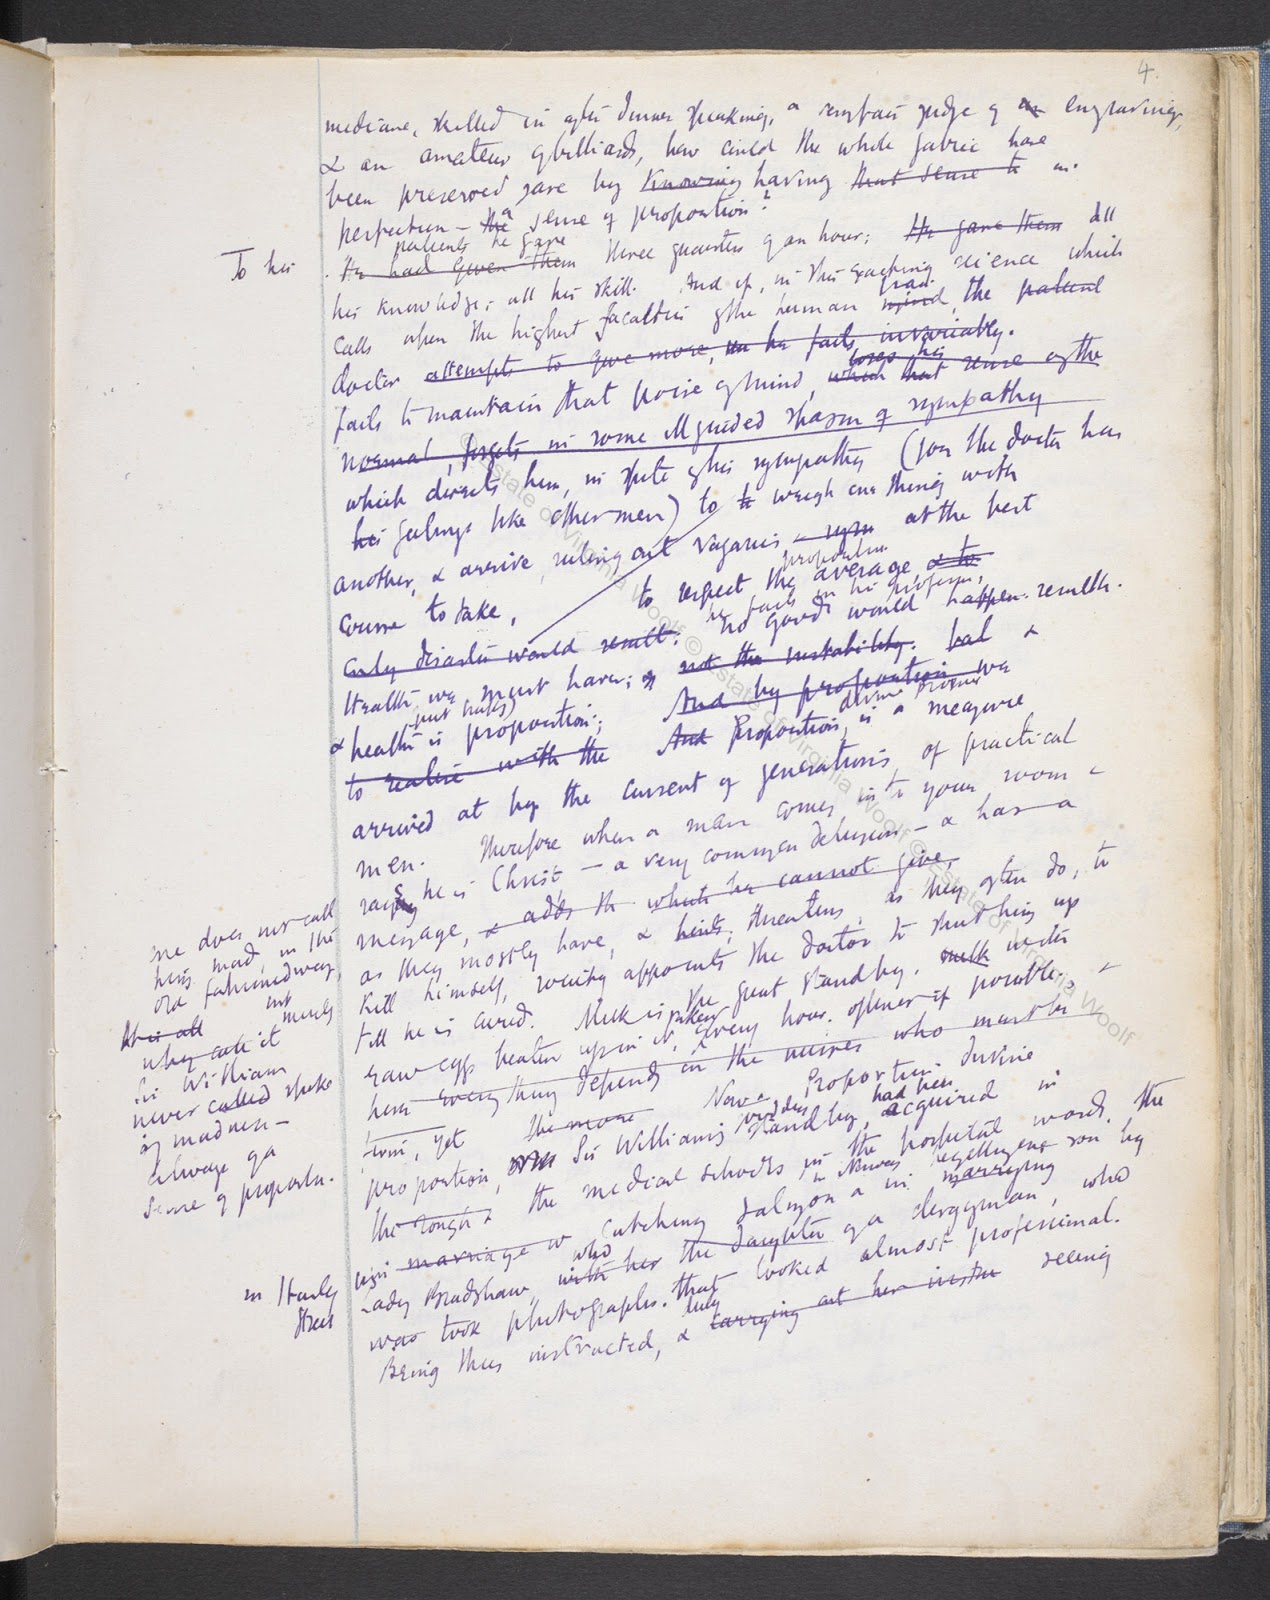 4.
medicine, skilled in after dinner speaking, a very fair judge of engravings,
& an amateur of billiards, how could the whole fabric have
been preserved save by knowing having that sense to in
perfection - the a sense of proportion?
To his patients he gave
He had given them three quarters of an hour; He gave them all
his knowledge; all his skill. And if, in this exacting science which
calls upon the highest faculties of the human mind, the patient
doctor attempts to give more, he fails, invariably.
fails to maintain that poise of mind, which that loses his sense of the
normal, forgets in some misguided spasm of sympathy
which directs him, in spite of his sympathy (for the doctor has
his feelings like other men) to weigh one thing with
another, & arrive, ruling out vagaries at the best
course to take, to respect the proportion average & to
he fails in his profession,
only disaster would result. No good would happen. results.
Health we must have; not the instability. &
& health is proportion; And by proportion we
to realise with the And Proportion, divine is a measure
arrived at by the current of generations, of practical
men. Therefore when a man comes into your room &
says he is Christ - a very common delusion - & has a
message, & adds the which he cannot give,
as they mostly have, & hints, threatens, as they often do, to
kill himself, society appoints the doctor to shut him up
till he is cured. Milk is the great standby. milk with
raw eggs beaten up in it, taken every hour. oftener if possible.
here everything depends on the nurses who must be
firm, yet the more Now Proportion. Divine
proportion, was Sir William's standby, had been acquired in
the rough & the medical schools in the hospital wards. the
marriage catching salmon & in marrying begetting one son by
Lady Bradshaw, with her who the daughter of a clergyman, who
was took photographs. that looked almost professional.
Being thus instructed, & carrying out her seeing
He does not call
him mad, in the
old fashioned way,
It is all not merely
why call it
Sir William
never called spoke
of madness -
always of a
sense of proportion.
in Harley
Street
© Estate of Virginia Woolf © Estate of Virginia Woolf © Estate of Virginia Woolf